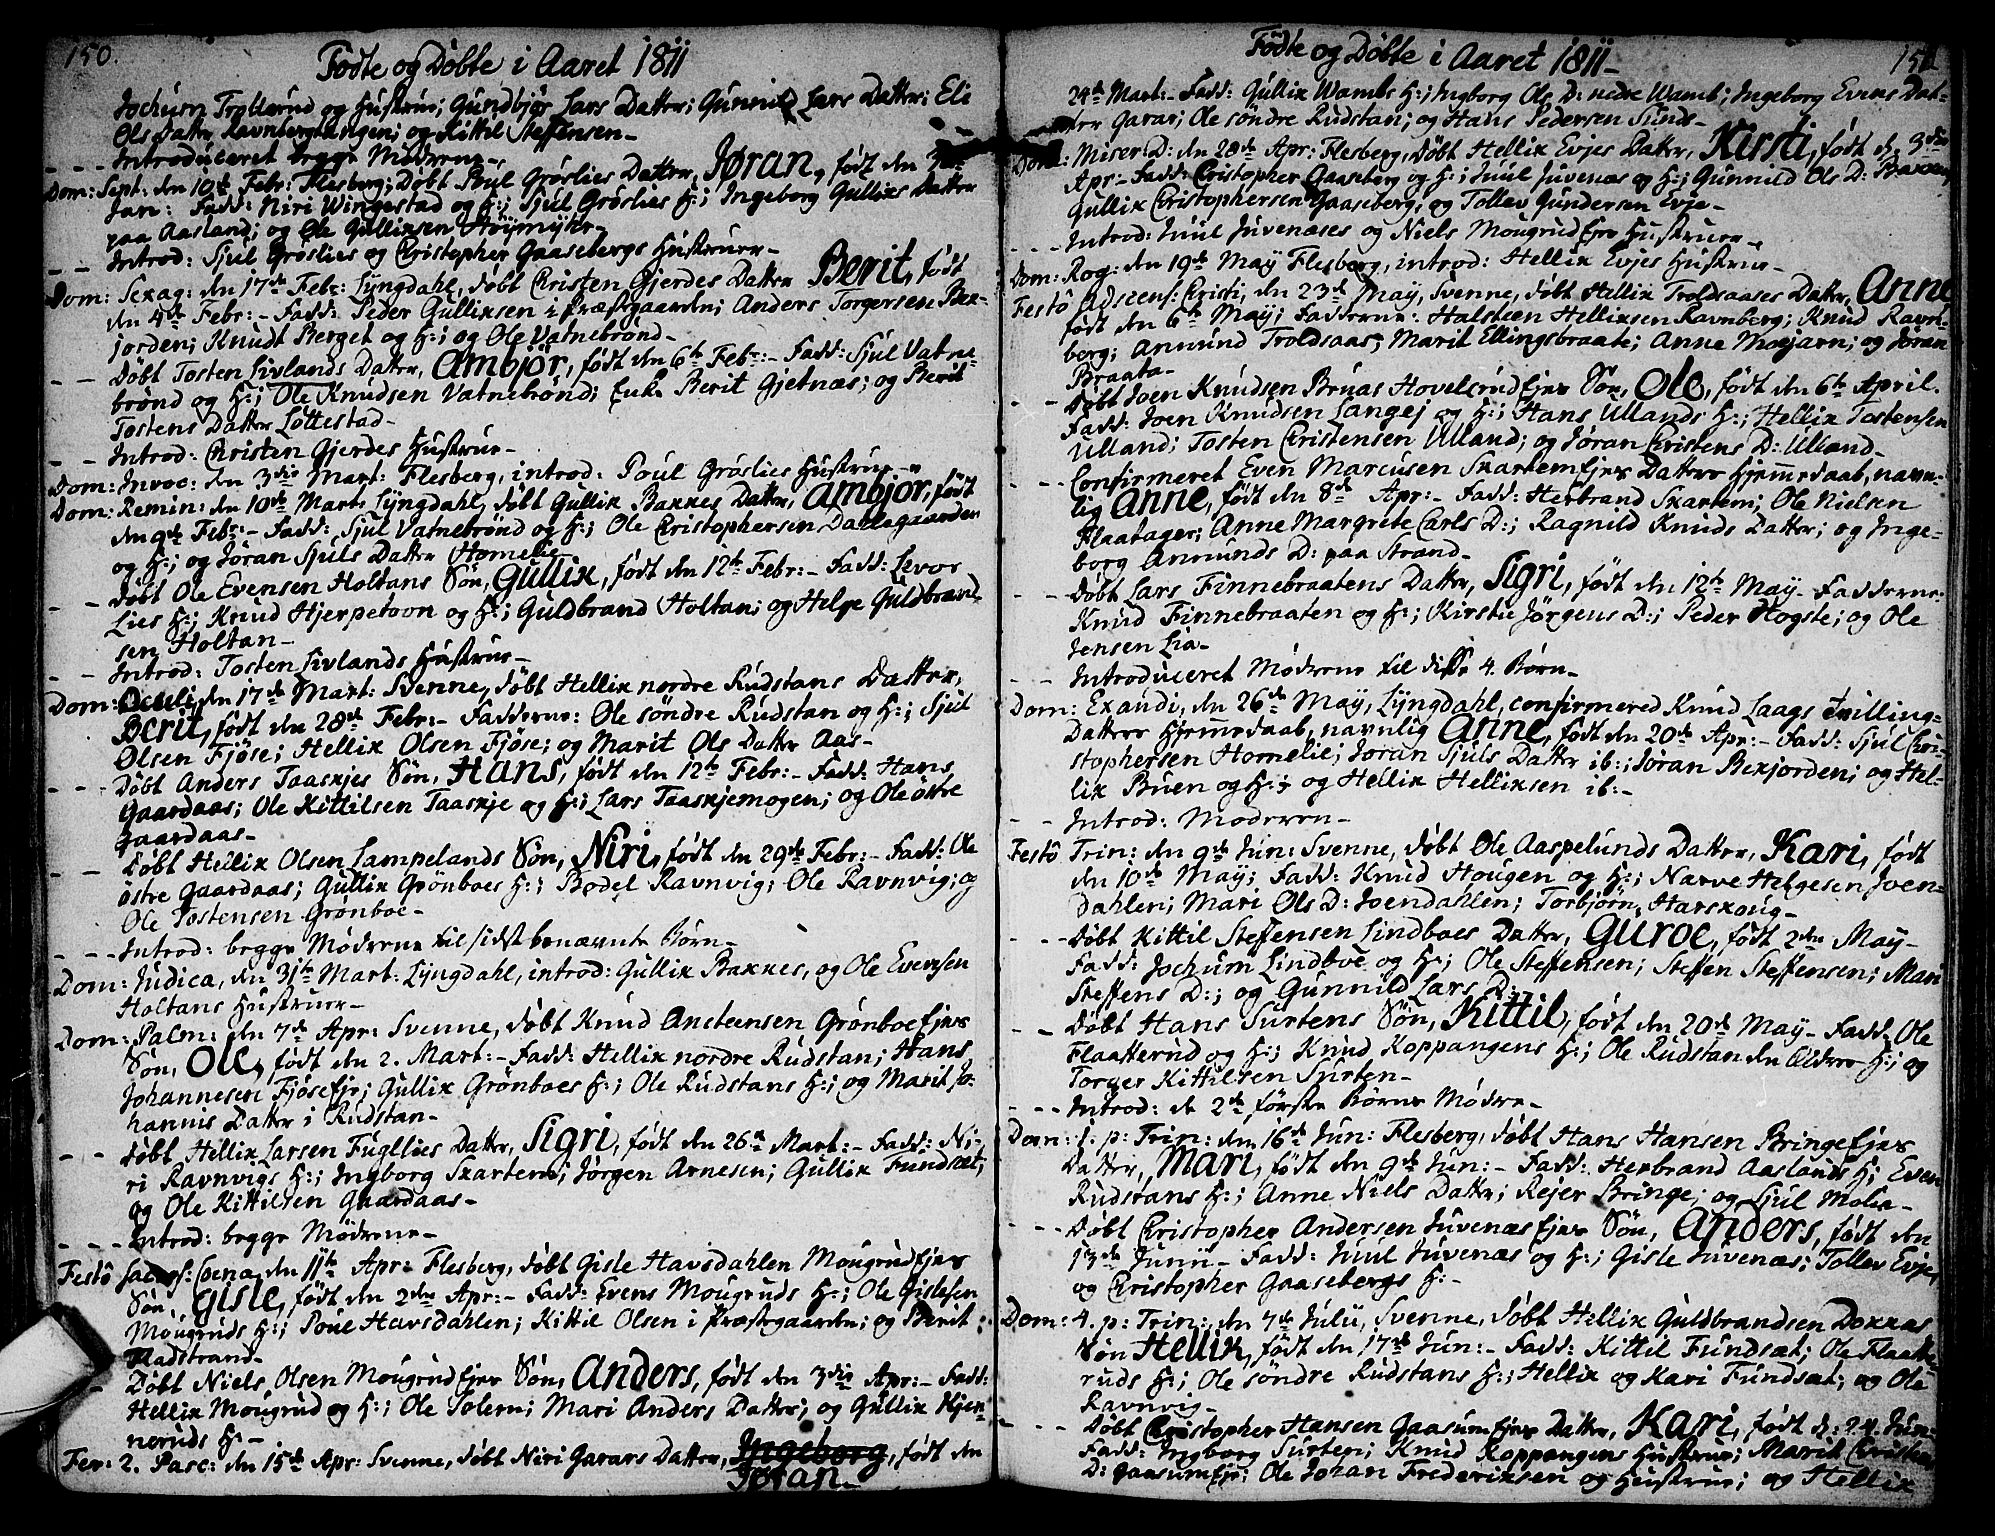 150.
Födte og Döbte i Aaret 1811
Jochum Trollerud og Hustrue; Gundbjör Lars Datter; Gunnild Lars Datter; Eli
Ols Datter Ravnberghaugen; og Kittil Steffensen-
- - - Introduceret begge Mödrene-
Dom: Sept: den 10de Febr: Flesberg; Döbt Poul Gröslies Datter, Jøran, födt den
Jan: Fadd: Niri Wingestad og H:; Sjul Gröslies H:; Ingeborg Gulliks Datter
paa Aasland; og Ole Gulliksen Höymyhr-
- - Introd: Sjul Gröslies og Christopher Gaasebergs Hustruer-
Dom: Sexag: den 17de Febr: Lyngdahl, döbt Christen Gjerdes Datter Berit, födt
den 4de Febr:- Fadd: Peder Gulliksen i Præstgaarden; Anders Torgersen Bek-
jorden; Knudt Berget og H:; og Ole Vatnebrönd-
- - Döbt Tosten Livlands Datter, Ambjör, födt den 6te Febr:- Fadd: Sjul Vatne-
brönd og H:; Ole Knudsen Vatnebrönd; Enke Berit Gjetnæs; og Berit
Tostens Datter Löttestad-
- - Introd: Christen Gjerdes Hustrue-
Dom: Invoc: den 3die Mart: Flesberg, introd: Poul Gröslies Hustrue-
Dom: Remin: den 10de Mart: Lyngdahl, döbt Gullik Bakkes Datter, Ambjör, födt
den 9de Febr:- Fadd: Sjul Vatnebrönd og H:; Ole Christophersen Dahlsgaarden
og H:; og Jöran Sjuls Datter Homelie-
- - Döbt Ole Evensen Holtans Sön, Gullik, födt den 12te Febr:- Fadd: Levor
Lies H:; Knud Hjerpetovn og H:; Guldbrand Holtan; og Helge Guldbrand-
sen Holtan-
- - Introd: Tosten Livlands Hustrue-
Dom: Oculi, den 17de Mart: Svenne, döbt Hellik nordre Rudstans Datter,
Berit, födt den 28de Febr:- Fadderne: Ole söndre Rudstan og H:; Sjul
Olsen Fjöse; Hellik Olsen Fjöse; og Marit Ols Datter Aas-
- - - Döbt Anders Taaskjes Sön, Hans, födt den 12te Febr:- Fadd: Hans
Gaardaas; Ole Kittilsen Taaskje og H:; Lars Taaskjemogen; og Ole östre
Gaardaas-
- - Döbt Hellik Olsen Lampelands Sön, Niri, födt den 29de Febr:- Fadd: Ole
östre Gaardaas; Gullik Grönboes H:; Bodel Ravnvig; Ole Ravnvig; og
Ole Tostensen Grönboe-
- - - Introd: begge Mödrene til sidst benævnte Börn-
Dom: Judica, den 31te Mart: Lyngdahl, introd: Gullik Bakkes, og Ole Evensen
Holtans Hustruer-
Dom: Palm: den 7de Apr: Svenne, döbt Knud Ansteensen Grönboeejes
Sön, Ole, födt den 2. Mart:- Fadd: Hellik nordre Rudstan; Hans
Johannesen Fjöseeje; Gullik Grönboes H:; Ole Rudstans H:; og Marit Jo-
hannis Datter i Rudstan-
- - Döbt Hellik Larsen Fugllies Datter, Sigri, födt den 26de Mart:- Fadd: Ni-
ri Ravnvigs H:; Ingborg Skartem; Jörgen Arnesen; Gullik Fundsæt;
og Ole Kittilsen Gaardaas-
- - - Introd: begge Mödrene-
Festô Sacros: Coena, den 11te Apr: Flesberg, döbt Gisle Havsdahlen Mougrudejes
Sön, Gisle, födt den 2den Apr:- Fadd: Evens Mougruds H:; Ole Gislesen
Mougruds H:; Poul Havsdahlen; Kittil Olsen i Præstegaarden; og Berit
Fladstrand-
- Döbt Niels Olsen Mougrudejes Sön, Anders, födt den 3die Apr:- Fadd:
Hellik Mougrud og H:; Ole Solem; Mari Anders Datter; og Gullik Kjen-
neruds H:-
Fer: 2. Pasc: den 15de Apr: Svenne, döbt Niri Garaas Datter, Ingeborg, födt den
Jøran-
151
Födte og Döbte i Aaret 1811-
24de Mart:- Fadd: Gullik Wambs H:; Ingborg Ols D: nedre Wamb; Ingeborg Evens Dat-
ter Garaas; Ole söndre Rudstan; og Hans Pedersen Sunds-
Dom: Miser D: den 28de Apr: Flesberg, döbt Hellik Evjes Datter, Kirsti, födt d. 3die
Apr:- Fadd: Christopher Gaaseberg og H:; Juul Juvenæs og H:; Gunnild Ols D: Bakken,
Gullik Christophersen Gaaseberg, og Tollev Gundersen Evje-
- - - Introd: Juul Juvenæses og Niels Mougrudejes Hustruer-
Dom: Rog: den 19de May Flesberg, introd: Hellik Evjes Hustrue-
Festô Adscens: Christi, den 23de May, Svenne, döbt Hellik Troldsaases Datter, Anne
födt den 6te May; Fadderne: Halsteen Helliksen Ravnberg; Knud Ravn-
berg; Anmund Troldsaas; Marit Ellingsbraate; Anne Moejarn; og Jöran
Braata-
- - Döbt Joen Knudsen Brunas Hovelsrudejes Sön, Ole, födt den 6te April.
Fadd: Joen Knudsen Langej og H:; Hans Ullands H:; Hellik Tostensen
Ulland; Tosten Christensen Ulland; og Jöran Christens D: Ulland-
- - - Confirmeret Even Marcusen Skartemejes Datters Hjemmedaab, navn-
lig Anne, födt den 8de Apr:- Fadd: Herbrand Skartem; Ole Nielsen
Flaatager; Anne Margrete Carls D:; Ragnild Knuds Datter; og Inge-
borg Anmunds D: paa Strand-
- - - Döbt Lars Finnebraatens Datter, Sigri, födt den 12te May- Fadderne:
Knud Finnebraaten og H:; Kirstie Jörgens D:; Peder Hogste; og Ole
Jensen Lia-
- - - Introduceret Mödrene til disse 4. Börn-
Dom: Exaudi, den 26de May, Lyngdahl, confirmered Knud Laags Tvilling-
Datters Hjemmedaab, navnlig Anne, födt den 20de Apr:- Fadd: Sjul Chri-
stophersen Homelie; Jöran Sjuls Datter ib:; Jöran Bekjorden; og Hel-
lik Buen og H:; og Hellik Helliksen ib:-
- - Introd: Moderen-
Festô Trin: den 9de Jun: Svenne, döbt Ole Aaspelunds Datter, Kari, födt
den 10de May; Fadd: Knud Hougen og H:; Narve Helgesen Joen-
dahlen; Mari Ols D: Joendahlen; Torbjörn Harskoug-
- - - Döbt Kittil Steffensen Lindboes Datter, Guroe, födt 2den May-
Fadd: Jochum Lindboe og H:; Ole Steffensen; Steffen Steffensen; Mari
Steffens D:; og Gunnild Lars D:-
- - Döbt Hans Surtens Sön, Kittil, födt den 20de May- Fadd: Ole
Flaatterud og H:; Knud Koppangens H:; Ole Rudstan den Ældres H:; og
Torger Kittilsen Surten-
- - - Introd: de 2de förste Börns Mödre-
Dom: 1. p: Trin: den 16de Jun: Flesberg, döbt Hans Hansen Bringeejes
Datter, Mari, födt den 9de Jun:- Fadd: Herbrand Aaslands H:; Even
Rudstans H:; Anne Niels Datter; Rejer Bringe; og Sjul Molia-
- - - Döbt Christopher Andersen Juvenæsejes Sön, Anders, födt den
13de Junii- Fadd: Juul Juvenæs og H:; Gisle Juvenæs; Tollev Evje,
og Christopher Gaasebergs H:-
Dom: 4. p: Trin:, den 7de Julii, Svenne, döbt Hellik Guldbrandsen Dokkas
Sön Hellik, födt den 17de Jun:- Fadd: Kittil Fundsæt; Ole Flaatte-
ruds H:; Ole söndre Rudstans H:; Hellik og Kari Fundsæt; og Ole
Ravnvig-
- - - Döbt Christopher Hansen Gaasumejes Datter, Kari, födt d: 24. Jun:
Fadd: Ingborg Surten; Knud Koppangens Hustrue; Marit Christens
D: Gaasumeje; Ole Johan Frederiksen og Hustrue; og Hellik